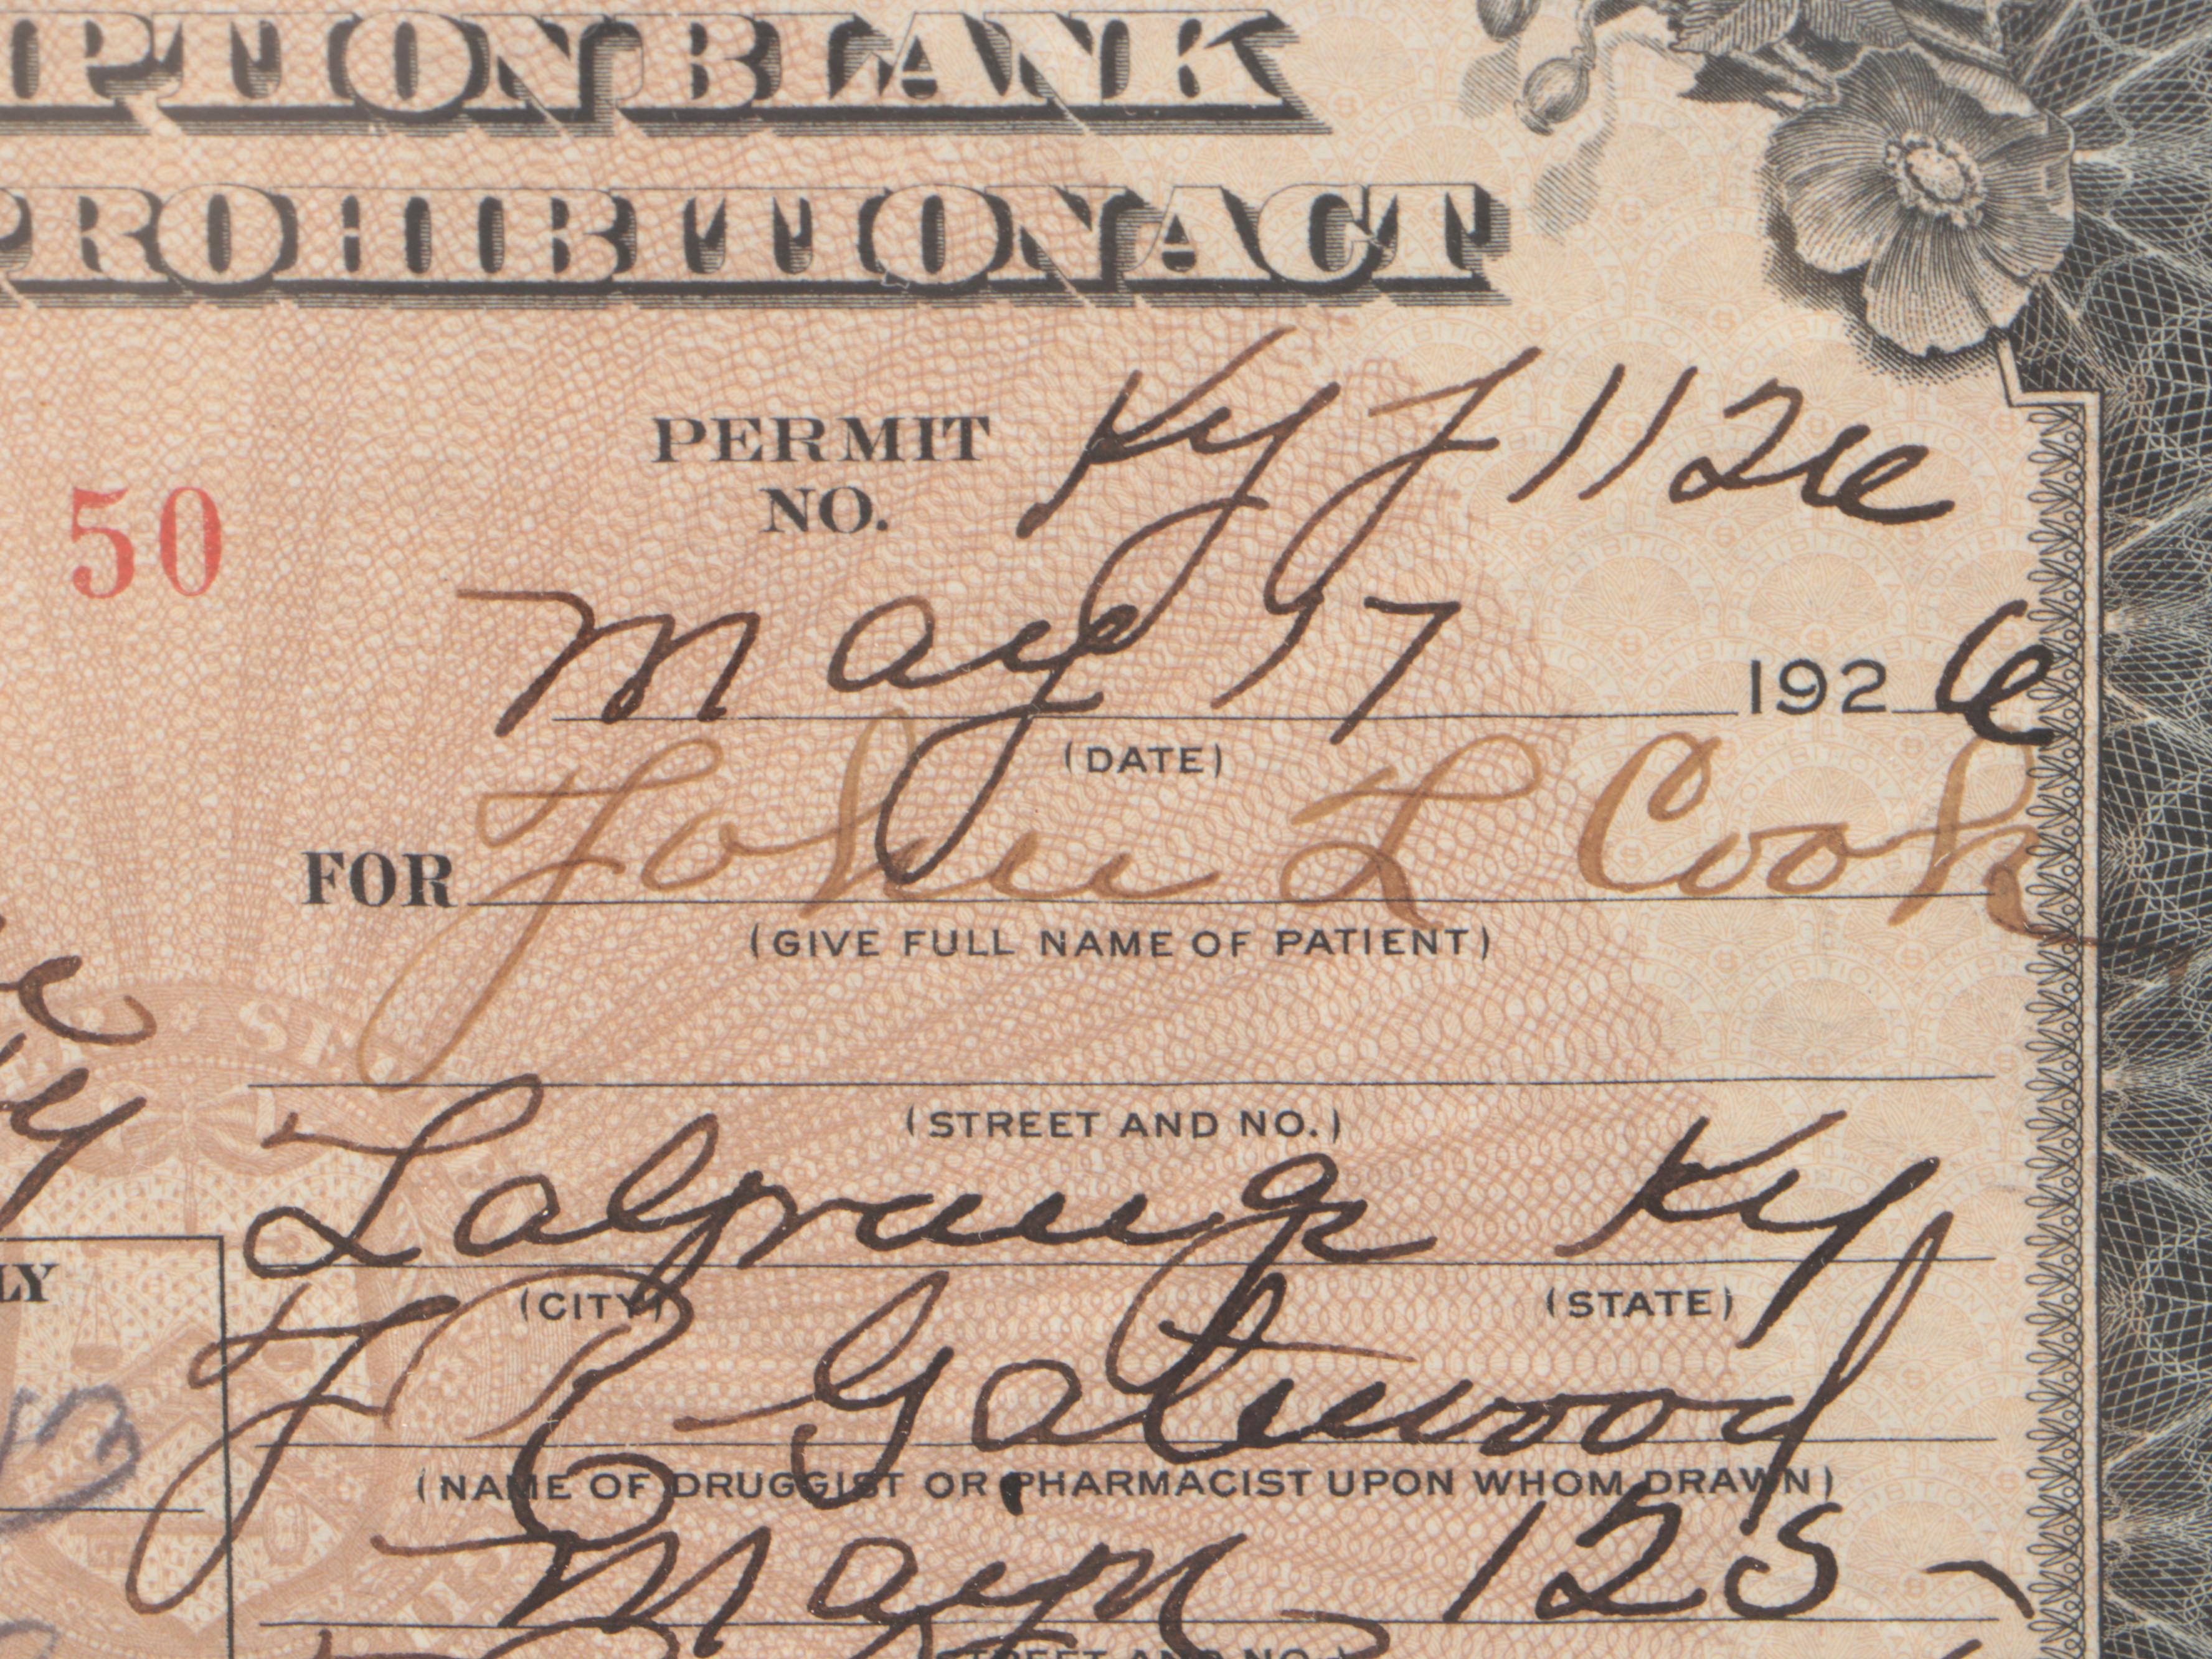 IPTION BLANK
PROHIBITION ACT
PERMIT NO. Ky J 1126
50
May 17 1926
(DATE)
FOR John L Cook
(GIVE FULL NAME OF PATIENT)
(STREET AND NO.)
Lagrange Ky
(CITY) (STATE)
LY
J R Gatewood
(NAME OF DRUGGIST OR PHARMACIST UPON WHOM DRAWN)
Main 125
(STREET AND NO.)